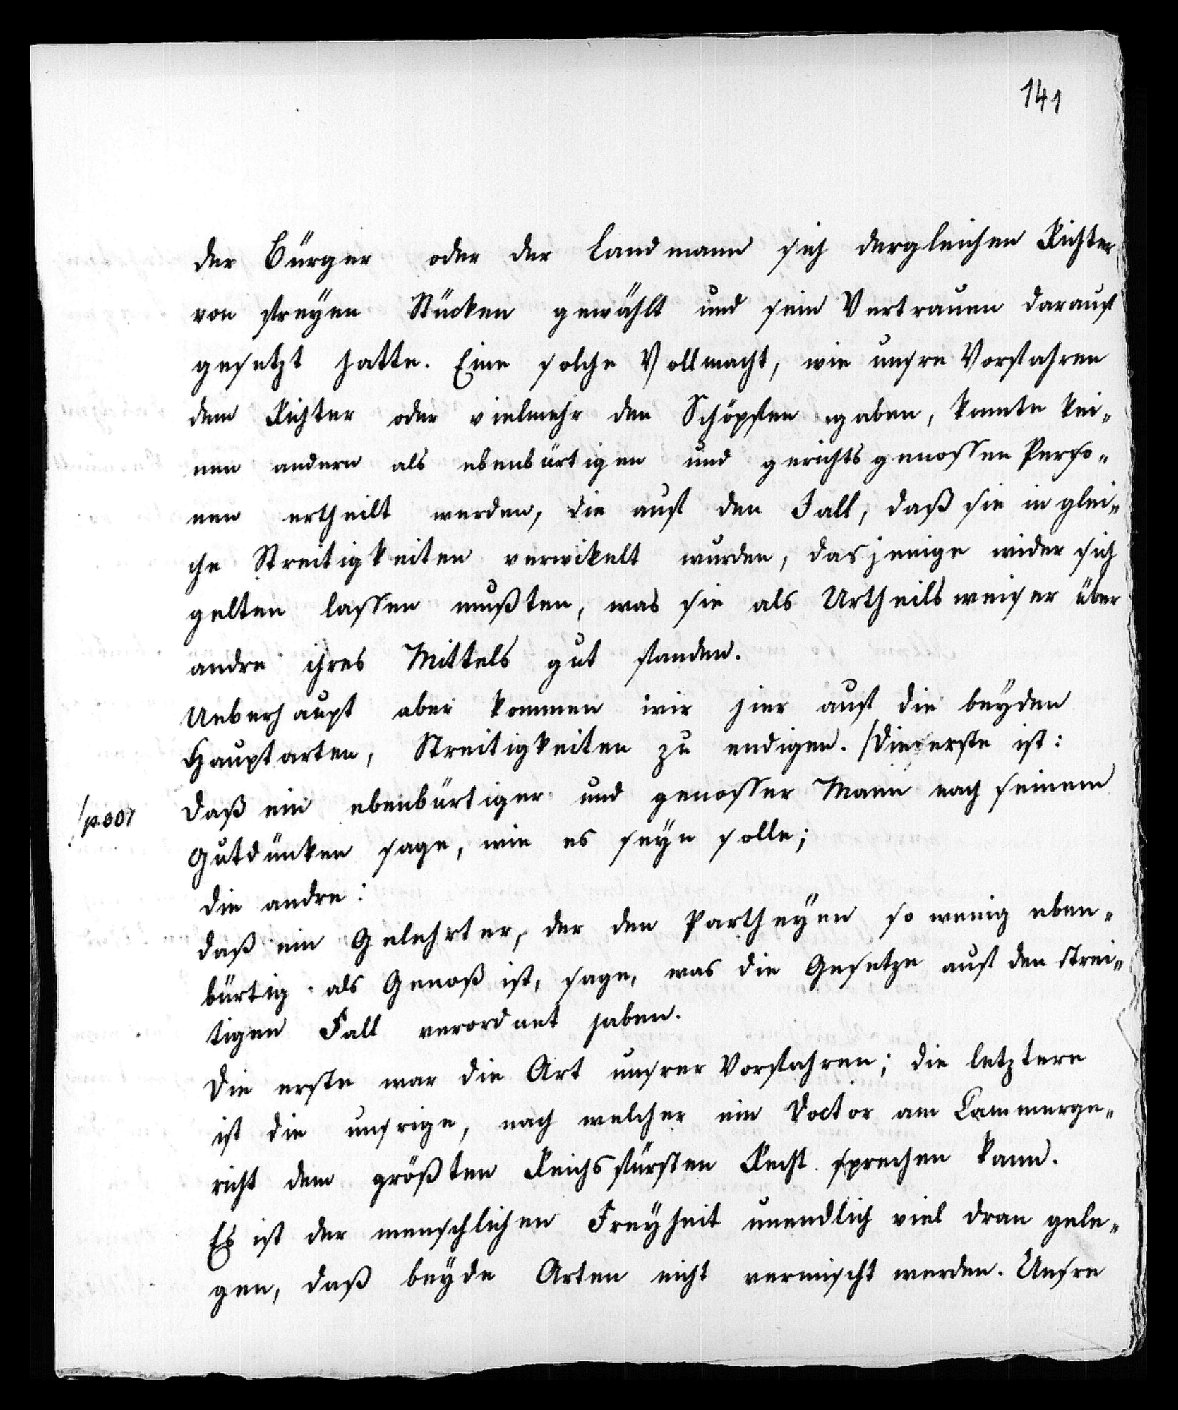 141
der Bürger oder der Landmann sich dergleichen Richter
von freyen Stücken gewählt und sein Vertrauen darauf
gesetzt hatte. Eine solche Vollmacht, wie unsre Vorfahren
dem Richter oder vielmehr den Schöpfen gaben, konnte kei-
nen andern als ebenbürtigen und gerichtsgenossen Perso-
nen ertheilt werden, die auf den Fall, daß sie in glei-
che Streitigkeiten verwikelt wurden, dasjenige wider sich
gelten lassen mußten, was sie als Urtheilsweiser über
andre ihres Mittels gut fanden.
Ueberhaupt aber kommen wir hier auf die beyden
Hauptarten, Streitigkeiten zu endigen. /Die erste ist:
daß ein ebenbürtiger und genosser Mann nach seinem
Gutdünken sage, wie es seyn solle;
die andre:
daß ein Gelehrter, der den Partheyen so wenig eben-
bürtig als Genoß ist, sage, was die Gesetze auf den strei-
tigen Fall verordnet haben.
Die erste war die Art unsrer Vorfahren; die letztere
ist die unsrige, nach welcher ein Doctor am Cammerge-
richt dem größten Reichsfürsten Recht sprechen kann.
Es ist der menschlichen Freyheit unendlich viel dran gele-
gen, daß beyde Arten nicht vermischt werden. Unsre